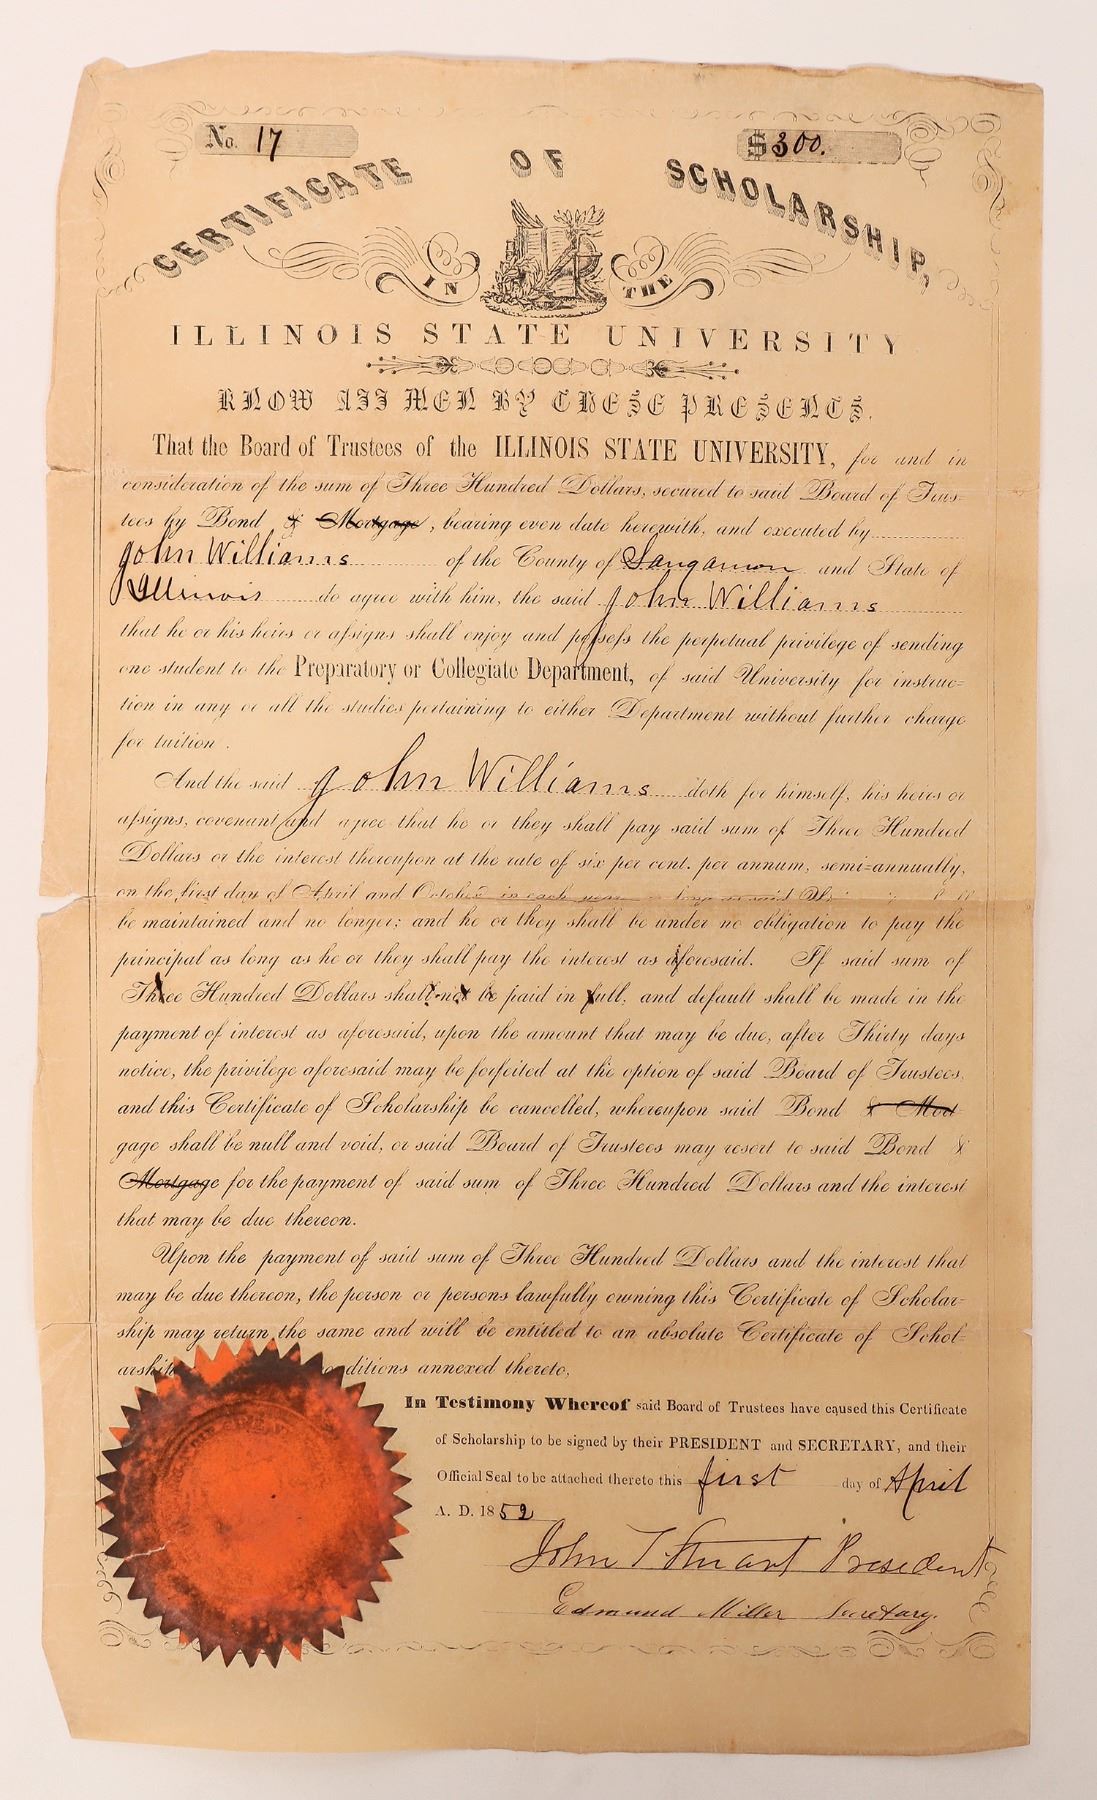 No. 17 $300.
CERTIFICATE OF SCHOLARSHIP,
IN THE
ILLINOIS STATE UNIVERSITY
KNOW ALL MEN BY THESE PRESENTS.
That the Board of Trustees of the ILLINOIS STATE UNIVERSITY, for and in
consideration of the sum of Three Hundred Dollars, secured to said Board of Trus-
tees by Bond & Mortgage, bearing even date herewith, and executed by
John Williams of the County of Sangamon and State of
Illinois do agree with him, the said John Williams
that he or his heirs or assigns shall enjoy and possess the perpetual privilege of sending
one student to the Preparatory or Collegiate Department, of said University for instruc=
tion in any or all the studies pertaining to either Department without further charge
for tuition.
And the said John Williams doth for himself, his heirs or
assigns, covenant and agree that he or they shall pay said sum of Three Hundred
Dollars or the interest thereupon at the rate of six per cent. per annum, semi=annually,
on the first day of April and October in each year as long as said
be maintained and no longer; and he or they shall be under no obligation to pay the
principal as long as he or they shall pay the interest as aforesaid. If said sum of
Three Hundred Dollars shall not be paid in full, and default shall be made in the
payment of interest as aforesaid, upon the amount that may be due, after Thirty days
notice, the privilege aforesaid may be forfeited at the option of said Board of Trustees,
and this Certificate of Scholarship be cancelled, whereupon said Bond & Mort
gage shall be null and void, or said Board of Trustees may resort to said Bond &
Mortgage for the payment of said sum of Three Hundred Dollars and the interest
that may be due thereon.
Upon the payment of said sum of Three Hundred Dollars and the interest that
may be due thereon, the person or persons lawfully owning this Certificate of Scholar=
ship may return the same and will be entitled to an absolute Certificate of Schol=
arship conditions annexed thereto,
In Testimony Whereof said Board of Trustees have caused this Certificate
of Scholarship to be signed by their PRESIDENT and SECRETARY, and their
Official Seal to be attached thereto this first day of April
A. D. 1852
John T Stuart President
Edmund Miller Secretary.